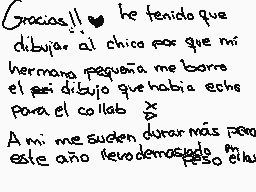 Gracias!! ♥ he tenido que
dibujar al chico por que mi
hermana pequeña me borro
el dibujo que habia echo
para el collab
A mi me suelen durar más pero
este año llevo demasiado en
peso ellas